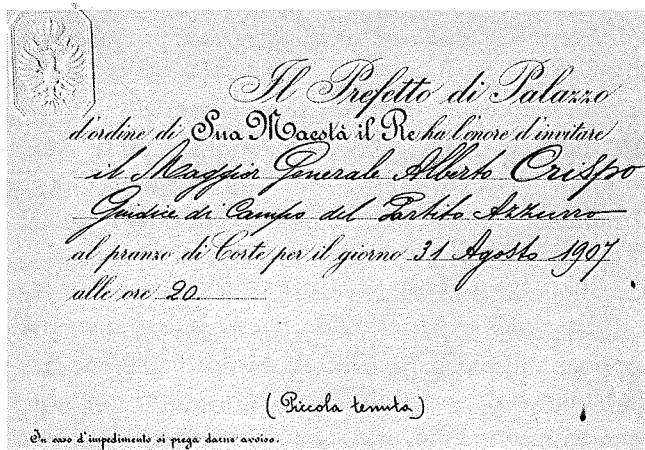 Il Prefetto di Palazzo
d'ordine di Sua Maestà il Re ha l'onore d'invitare
il Maggior Generale Alberto Crispo
Giudice di Campo del Partito Azzurro
al pranzo di Corte per il giorno 31 Agosto 1907
alle ore 20.
(Piccola tenuta)
In caso d'impedimento si prega darne avviso.